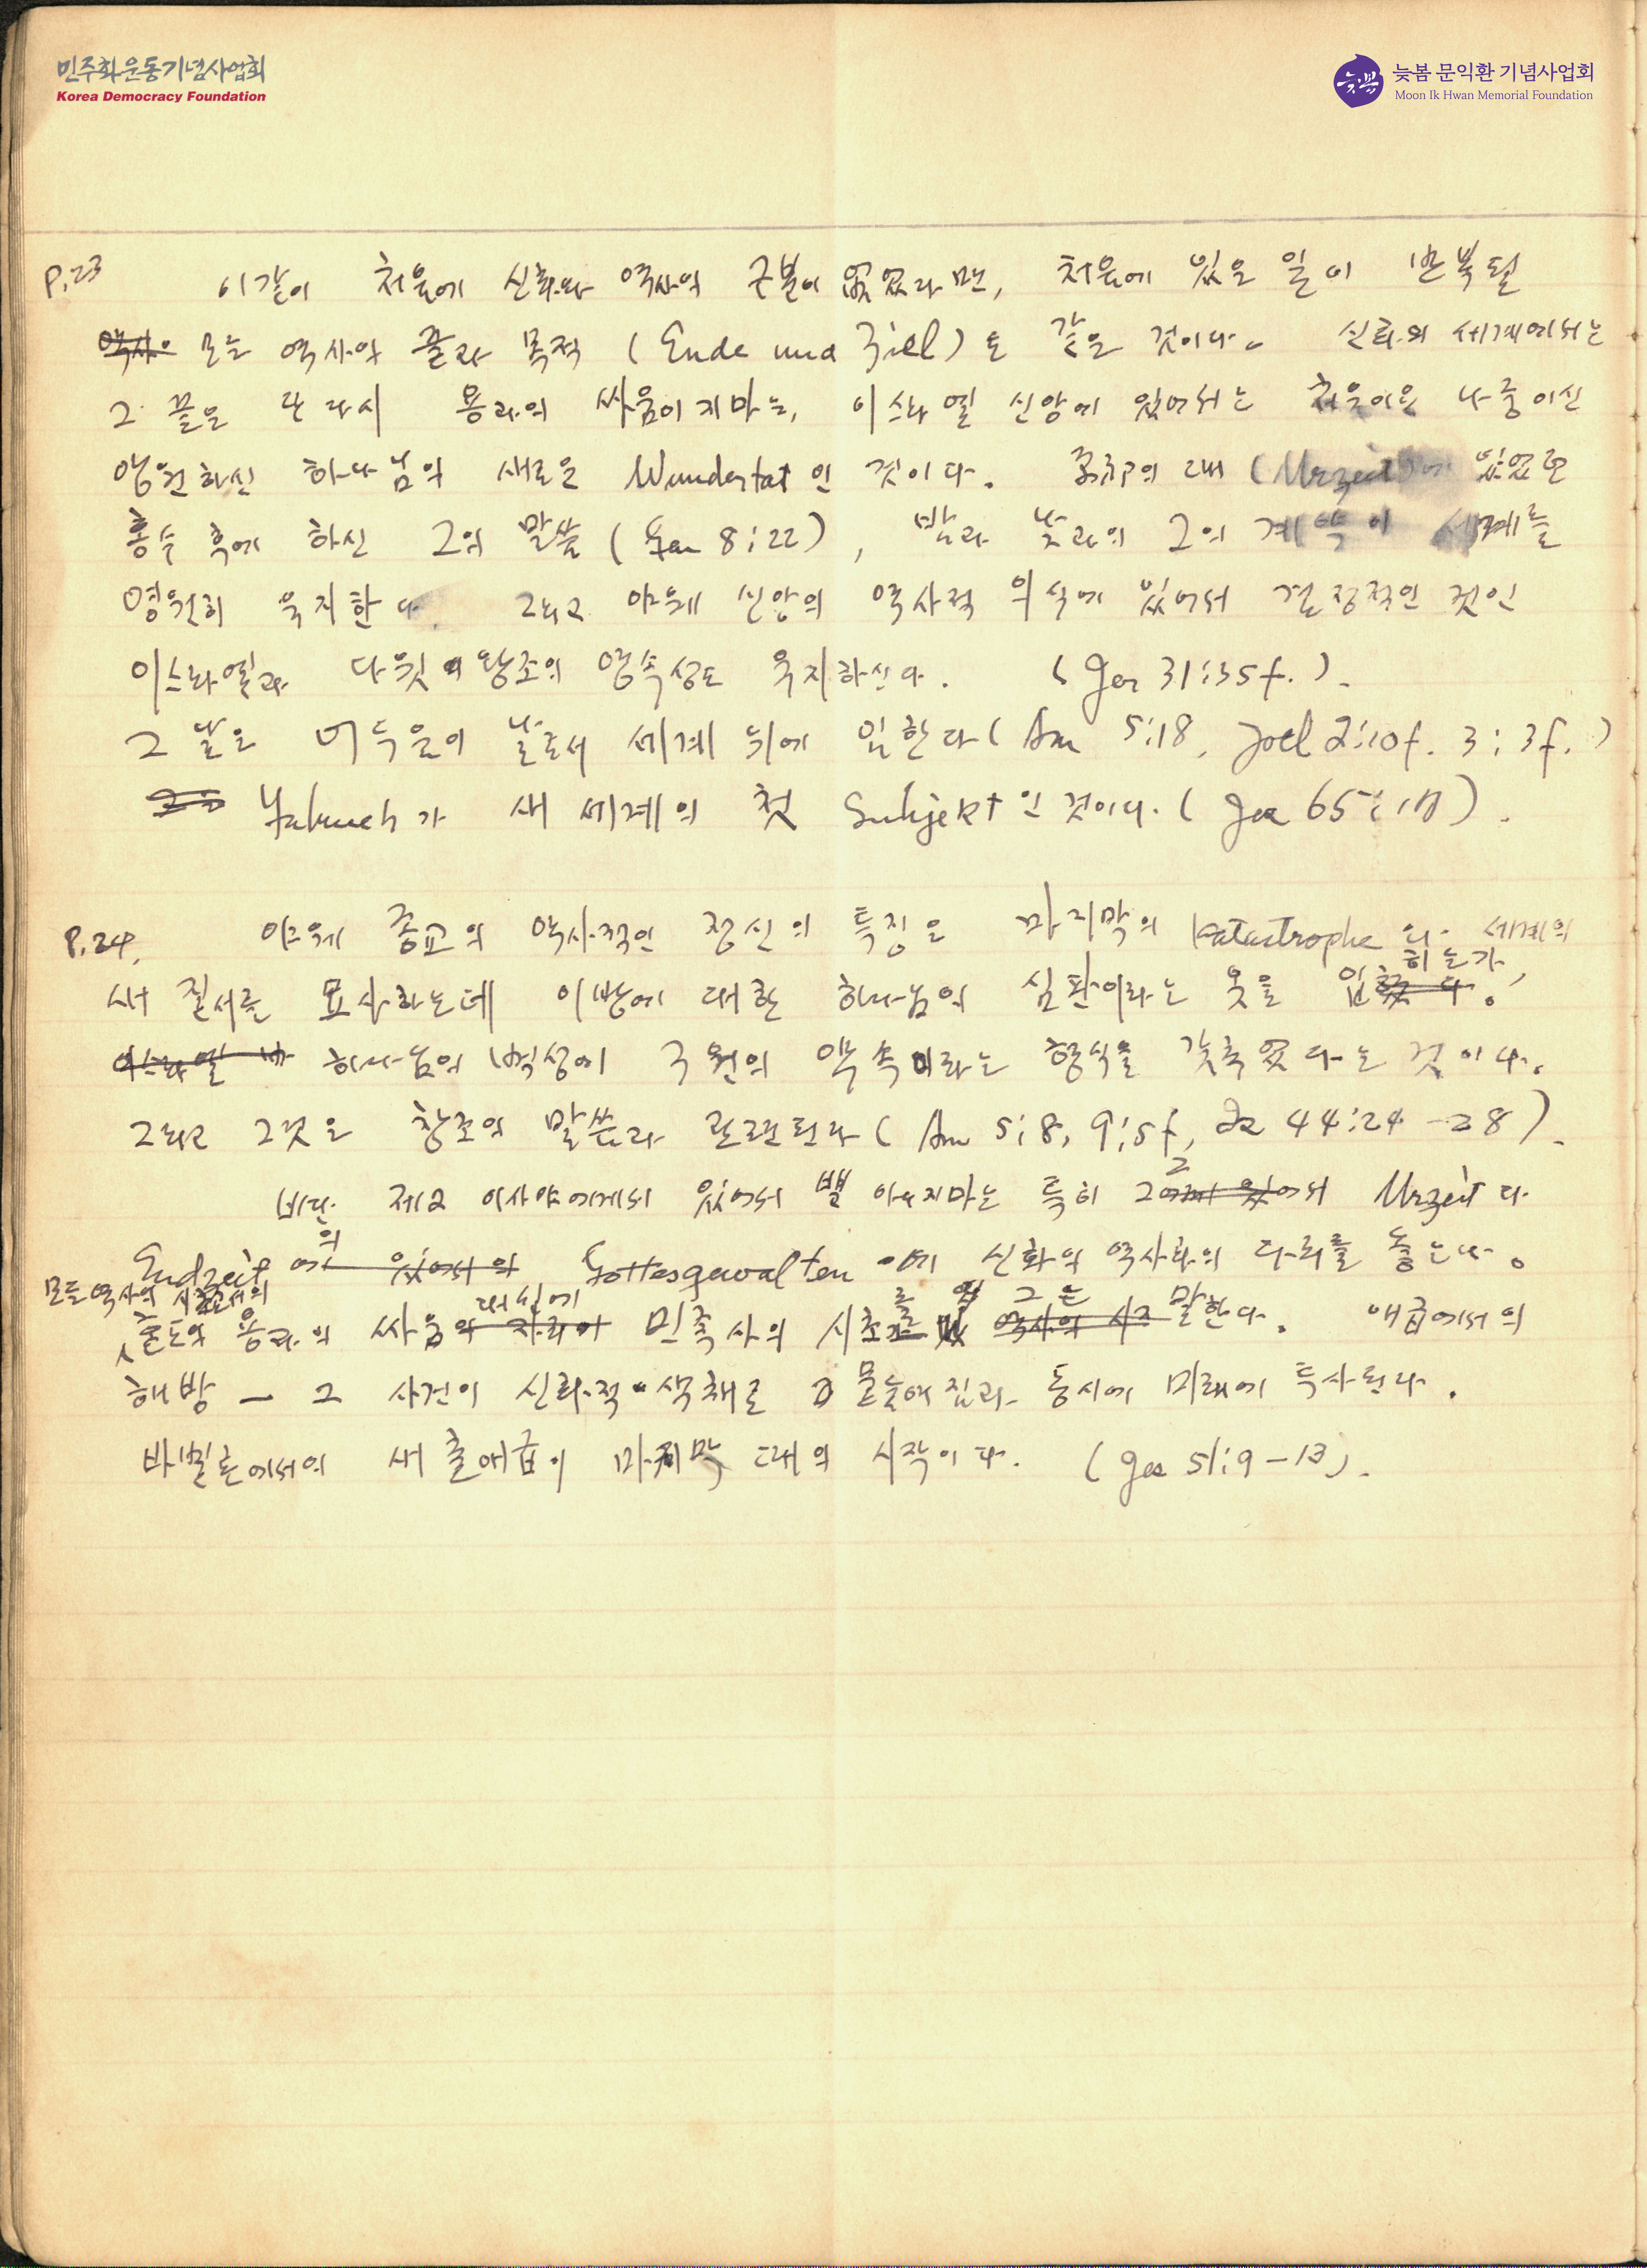 민주화운동기념사업회
Korea Democracy Foundation
늦봄 문익환 기념사업회
Moon Ik Hwan Memorial Foundation
P.23 이같이 처음에 신화와 역사의 구분이 없었다면, 처음에 있은 일이 반복될
모든 역사의 끝과 목적 (Ende und Ziel)도 같은 것이다. 신화의 세계에서는
그 끝은 또 다시 용과의 싸움이지마는, 이스라엘 신앙에 있어서는 처음이요 나중이신
영원하신 하나님의 새로운 Wundertat인 것이다. 의 때 (Urzeit)에 있었던
홍수 후에 하신 그의 말씀 (Gen 8:22), 밤과 낮과의 그의 계약이 세계를
영원히 유지한다. 그리고 야웨 신앙의 역사적 의식에 있어서 결정적인 것인
이스라엘과 다윗 왕조의 영속성도 유지하신다. (Jer 31:35f.).
그 날은 어두움의 날로서 세계 위에 임한다 (Am 5:18, Joel 2:10f. 3:3f.)
Jahweh가 새 세계의 첫 Subjekt인 것이다. (Jes 65:18).
P.24. 야웨 종교의 역사적인 정신의 특징은 마지막의 Katastrophe와 세계의
새 질서를 묘사하는데 이방에 대한 하나님의 심판이라는 옷을 입히는가,
하나님의 백성에 구원의 약속이라는 형식을 갖추었다는 것이다.
그리고 그것은 창조의 말씀과 관련된다 (Am 5:8, 9:5f, Jes 44:24-28).
제2 이사야에게서 있어서 뿐 아니지마는 특히 그에서 Urzeit와
Endzeit의 Gottesgewalten에 신화와 역사와의 다리를 놓는다.
모든 역사의
용과의 싸움 대신에 민족사의 시초를 그는 말한다. 애급에서의
해방 — 그 사건이 신화적 색채로 물들여짐과 동시에 미래에 투사된다.
바벨론에서의 새 출애급이 마지막 때의 시작이다. (Jes 51:9-13).